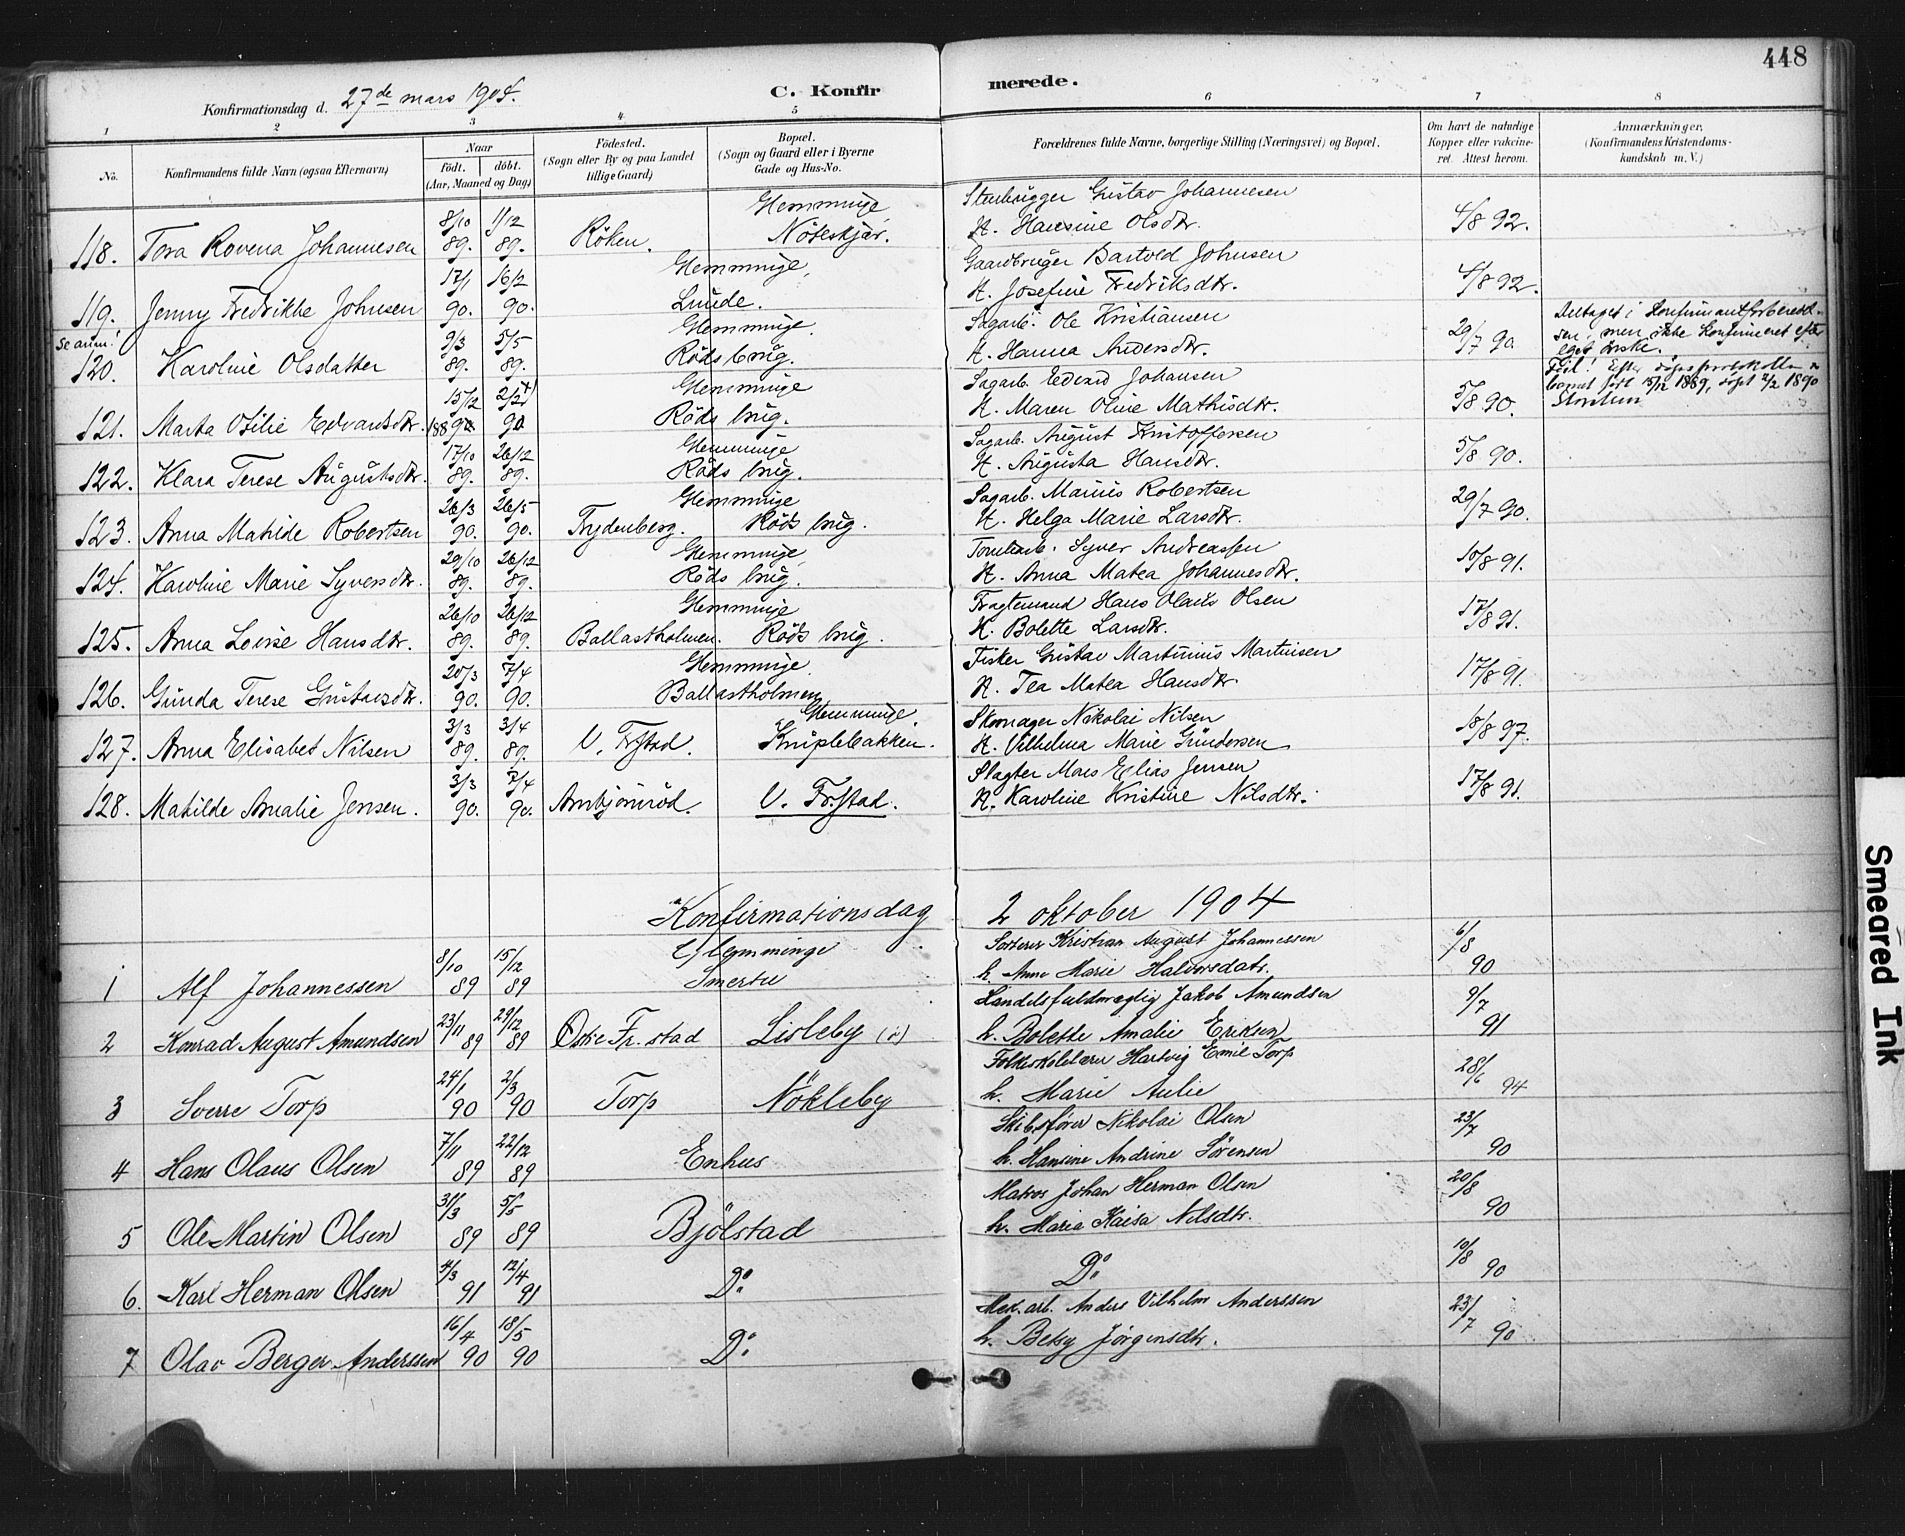 448
Konfirmationsdag d. 27de mars 1904.
C. Konfirmerede.
1 2 3 4 5 6 7 8
No.
Konfirmandens fulde Navn (ogsaa Efternavn)
Naar
født. døbt.
(Aar, Maaned og Dag)
Fødested.
(Sogn eller By og paa Landet tillige Gaard)
Bopæl.
(Sogn og Gaard eller i Byerne Gade og Hus-No.
Forældrenes fulde Navne, borgerlige Stilling (Næringsvei) og Bopæl.
Om havt de naturlige Kopper eller vakcineret. Attest herom.
Anmærkninger.
(Konfirmandens Kristendomskundskab m. V.)
118. Tora Rovena Johannesen 8/10 89. 1/12 89. Røken. Glemminge Nøteskjær. Stenhugger Gustav Johannesen H. Hansine Olsdtr. 4/8 92.
119. Jenny Fredrikke Johnsen 17/1 90. 16/2 90. Glemminge Lunde. Gaardbruger Bartold Johnsen H. Josefine Fredriksdtr. 4/8 92.
Se anm!
120. Karoline Olsdatter 9/3 89. 5/5 89. Glemminge Røds brug. Sagarb. Ole Kristiansen H. Hanna Andersdtr. 29/7 90. Deltaget i Konfirmantforberedelsen, men ikke konfirmeret efter eget ønske.
121. Marta Otilie Edvardsdtr. 15/12 2/2 90 Glemminge Røds brug. Sagarb. Edvard Johansen H. Maren Oline Mathisdtr. 5/8 90. Feil! Efter døpsprotokollen født 15/12 1889, døpt 2/2 1890
122. Klara Terese Augustsdtr. 17/10 89. 26/12 89. Glemminge Røds brug. Sagarb. August Kristoffersen H. Augusta Hansdtr. 5/8 90.
123. Anna Matilde Robertsen 26/3 90. 26/5 90. Trydenberg. Glemminge Røds brug. Sagarb. Marius Robertsen H. Helga Marie Larsdtr. 29/7 90.
124. Karoline Marie Syversdtr. 29/10 89. 26/12 89. Glemminge Røds brug. Tomtearb. Syver Andreassen H. Anna Matea Johannesdtr. 10/8 91.
125. Anna Lovise Hansdtr. 26/10 89. 26/12 89. Ballastholmen. Glemminge Røds brug. Fragtemand Hans Olaus Olsen H. Bolette Larsdtr. 17/8 91.
126. Gunda Terese Gustavsdtr. 20/3 90. 7/4 90. Glemminge Ballastholmen Fisker Gustav Martinius Martinsen H. Tea Matea Hansdtr. 17/8 91.
127. Anna Elisabet Nilsen 3/3 89. 3/4 89. V. Fr.stad. Glemminge. Kniplebakken. Skomager Nikolai Nilsen H. Vilhelma Marie Gundersen 18/8 97.
128. Matilde Amalie Jensen. 3/3 90. 7/4 90. Ambjörnröd. V. Fr.stad. Slagter Maes Elias Jensen H. Karoline Kristine Nilsdtr. 17/8 91.
Konfirmationsdag 2 oktober 1904
1 Alf Johannessen 8/10 89 15/12 89 Glemminge Smertu Sorterer Kristian August Johannessen h. Anne Marie Halvorsdatr. 6/8 90
2 Konrad August Amundsen 23/11 89 29/12 89 Østre Fr.stad Lisleby Handelsfuldmægtig Jakob Amundsen h. Bolette Amalie Eriksen 9/7 91
3 Sverre Torp 24/1 90 2/3 90 Torp Nökleby Folkeskolelærer Hartvig Emil Torp h. Marie Aulie 28/6 94
4 Hans Olaus Olsen 7/11 89 22/12 89 Enhus Skibsfører Nikolai Olsen h. Hansine Andrine Sørensen 23/7 90
5 Ole Martin Olsen 31/3 89 5/5 89 Bjölstad Matros Johan Herman Olsen h. Maria Kaisa Nilsdtr. 20/8 90
6. Karl Herman Olsen 4/3 91 12/4 91 Do Do 10/8 90
7 Olav Berger Anderssen 16/4 90 18/5 90 Do Mek. arb. Anders Vilhelm Anderssen h. Betsy Jörgensdtr. 23/7 90
Smeared Ink